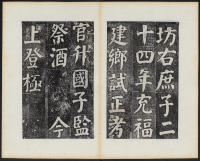 坊右庶子二
十四年充福
建鄉試正考
官升國子監
祭酒　今
上登極